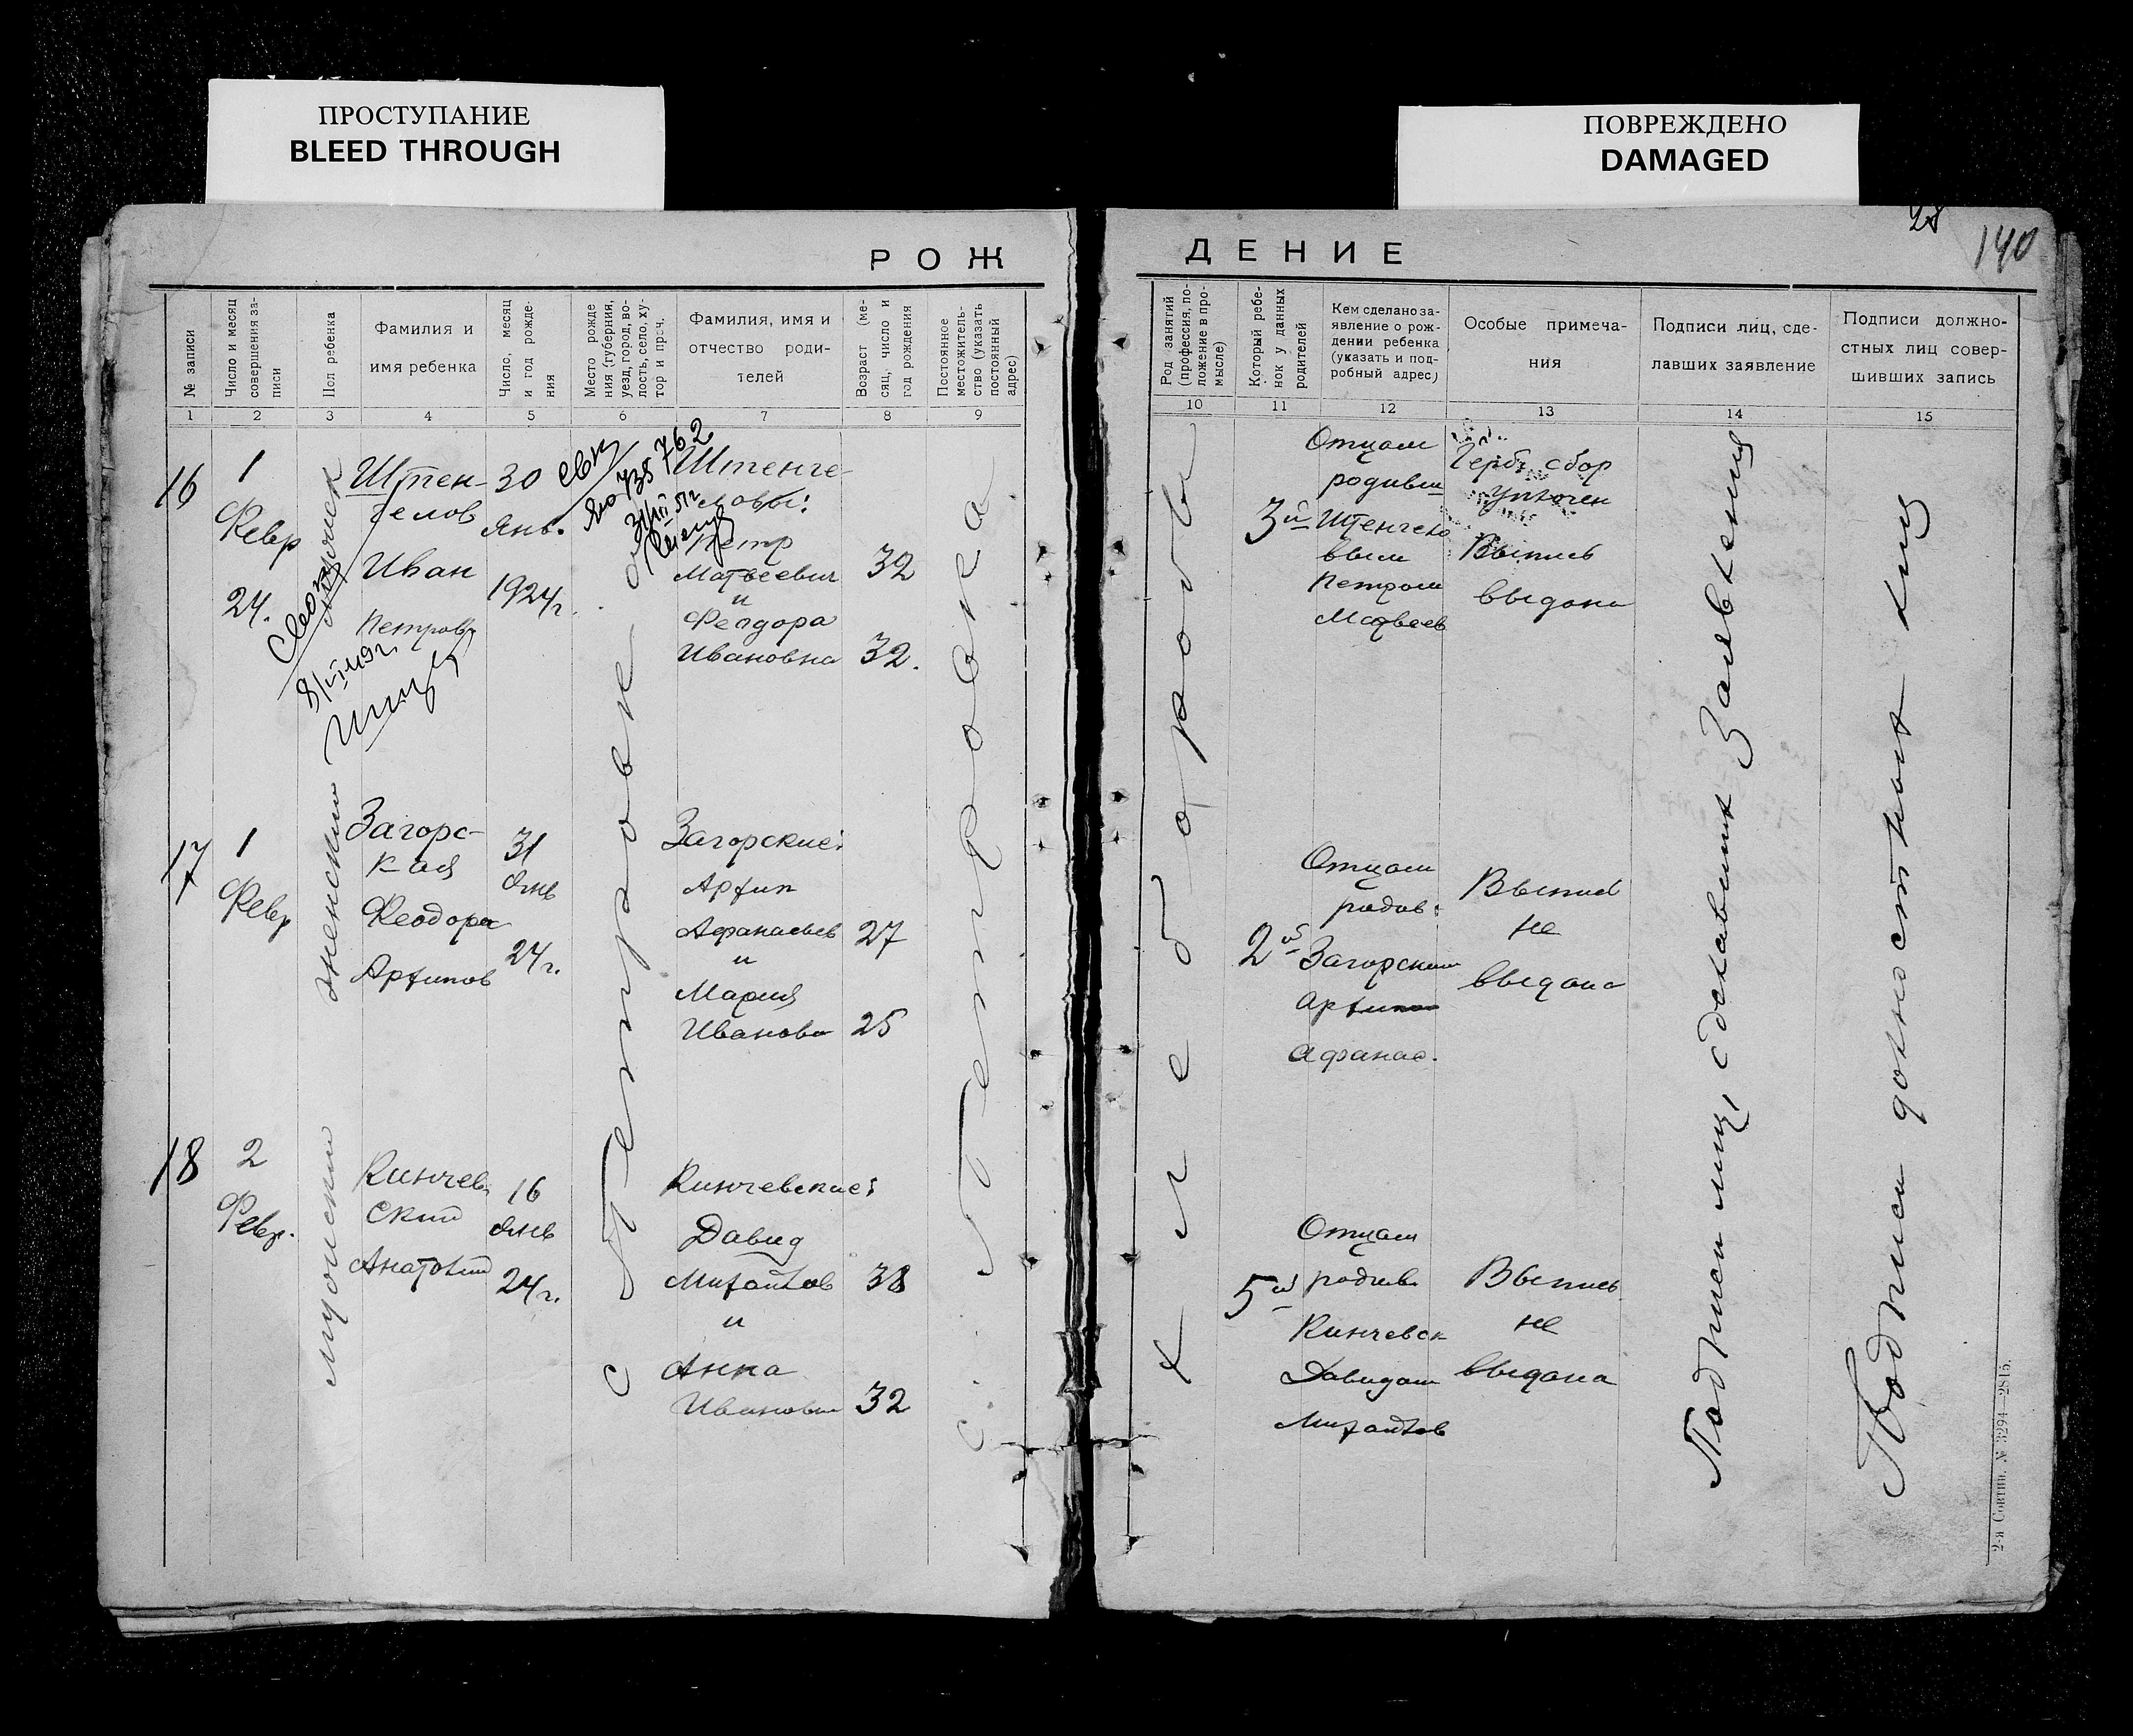 ПРОСТУПАНИЕ
BLEED THROUGH
ПОВРЕЖДЕНО
DAMAGED
28
140
РОЖ
ДЕНИЕ
№ записи
Число и месяц
совершения за-
писи
Пол ребенка
Фамилия и
имя ребенка
Число, месяц
и год рожде-
ния
Место рожде
ния (губерния,
уезд, город, во-
лость, село, ху-
тор и проч.
Фамилия, имя и
отчество роди-
телей
Возраст (ме-
сяц, число и
год рождения
Постоянное
местожитель-
ство (указать
постоянный
адрес)
Род занятий
(профессия, по-
ложение в про-
мысле)
Который ребе-
нок у данных
родителей
Кем сделано за-
явление о рож-
дении ребенка
(указать и под-
робный адрес)
Особые примеча-
ния
Подписи лиц, сде-
лавших заявление
Подписи должно-
стных лиц совер-
шивших запись
1 2 3 4 5 6 7 8 9
10 11 12 13 14 15
16
1
Февр
24.
Штен-
гелов
Иван
Петров
30
Янв.
1924г.
735762
Штенге-
ловы:
Петр
Матвеевич
и
Феодора
Ивановна
32
32.
3й
Отцом
родивш
Штенгело
вым
Петром
Матвеев
Герб. сбор
уплочен
Выпись
выдана
17
1
Февр
женский
Загорс-
кая
Феодора
Архипов
31
Янв
24г.
Загорские:
Архип
Афанасьев
и
Мария
Иванова
27
25
2й
Отцом
родив.
Загорским
Архипом
Афанас.
Выпись
не
выдана
18
2
Февр.
мужский
Кинчев
ский
Анатолий
16
Янв
24г.
Кинчевские:
Давид
Михайлов
и
Анна
Ивановна
38
32
5й
Отцом
родив
Кинчевск
Давидом
Михайлов
Выпись
не
выдана
с. Петровка
хлеборобы
Подписи лиц, сделавших Заявления
Подписи должностных лиц
2-я Совтип. № 3294—2815.